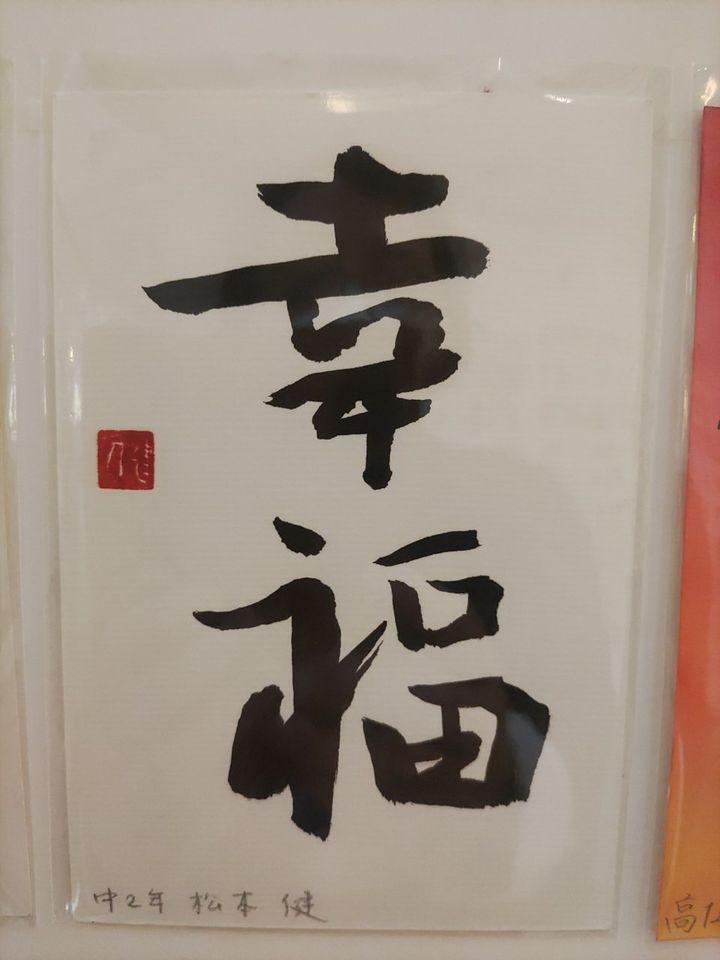 幸福
中2年 松本 健
高